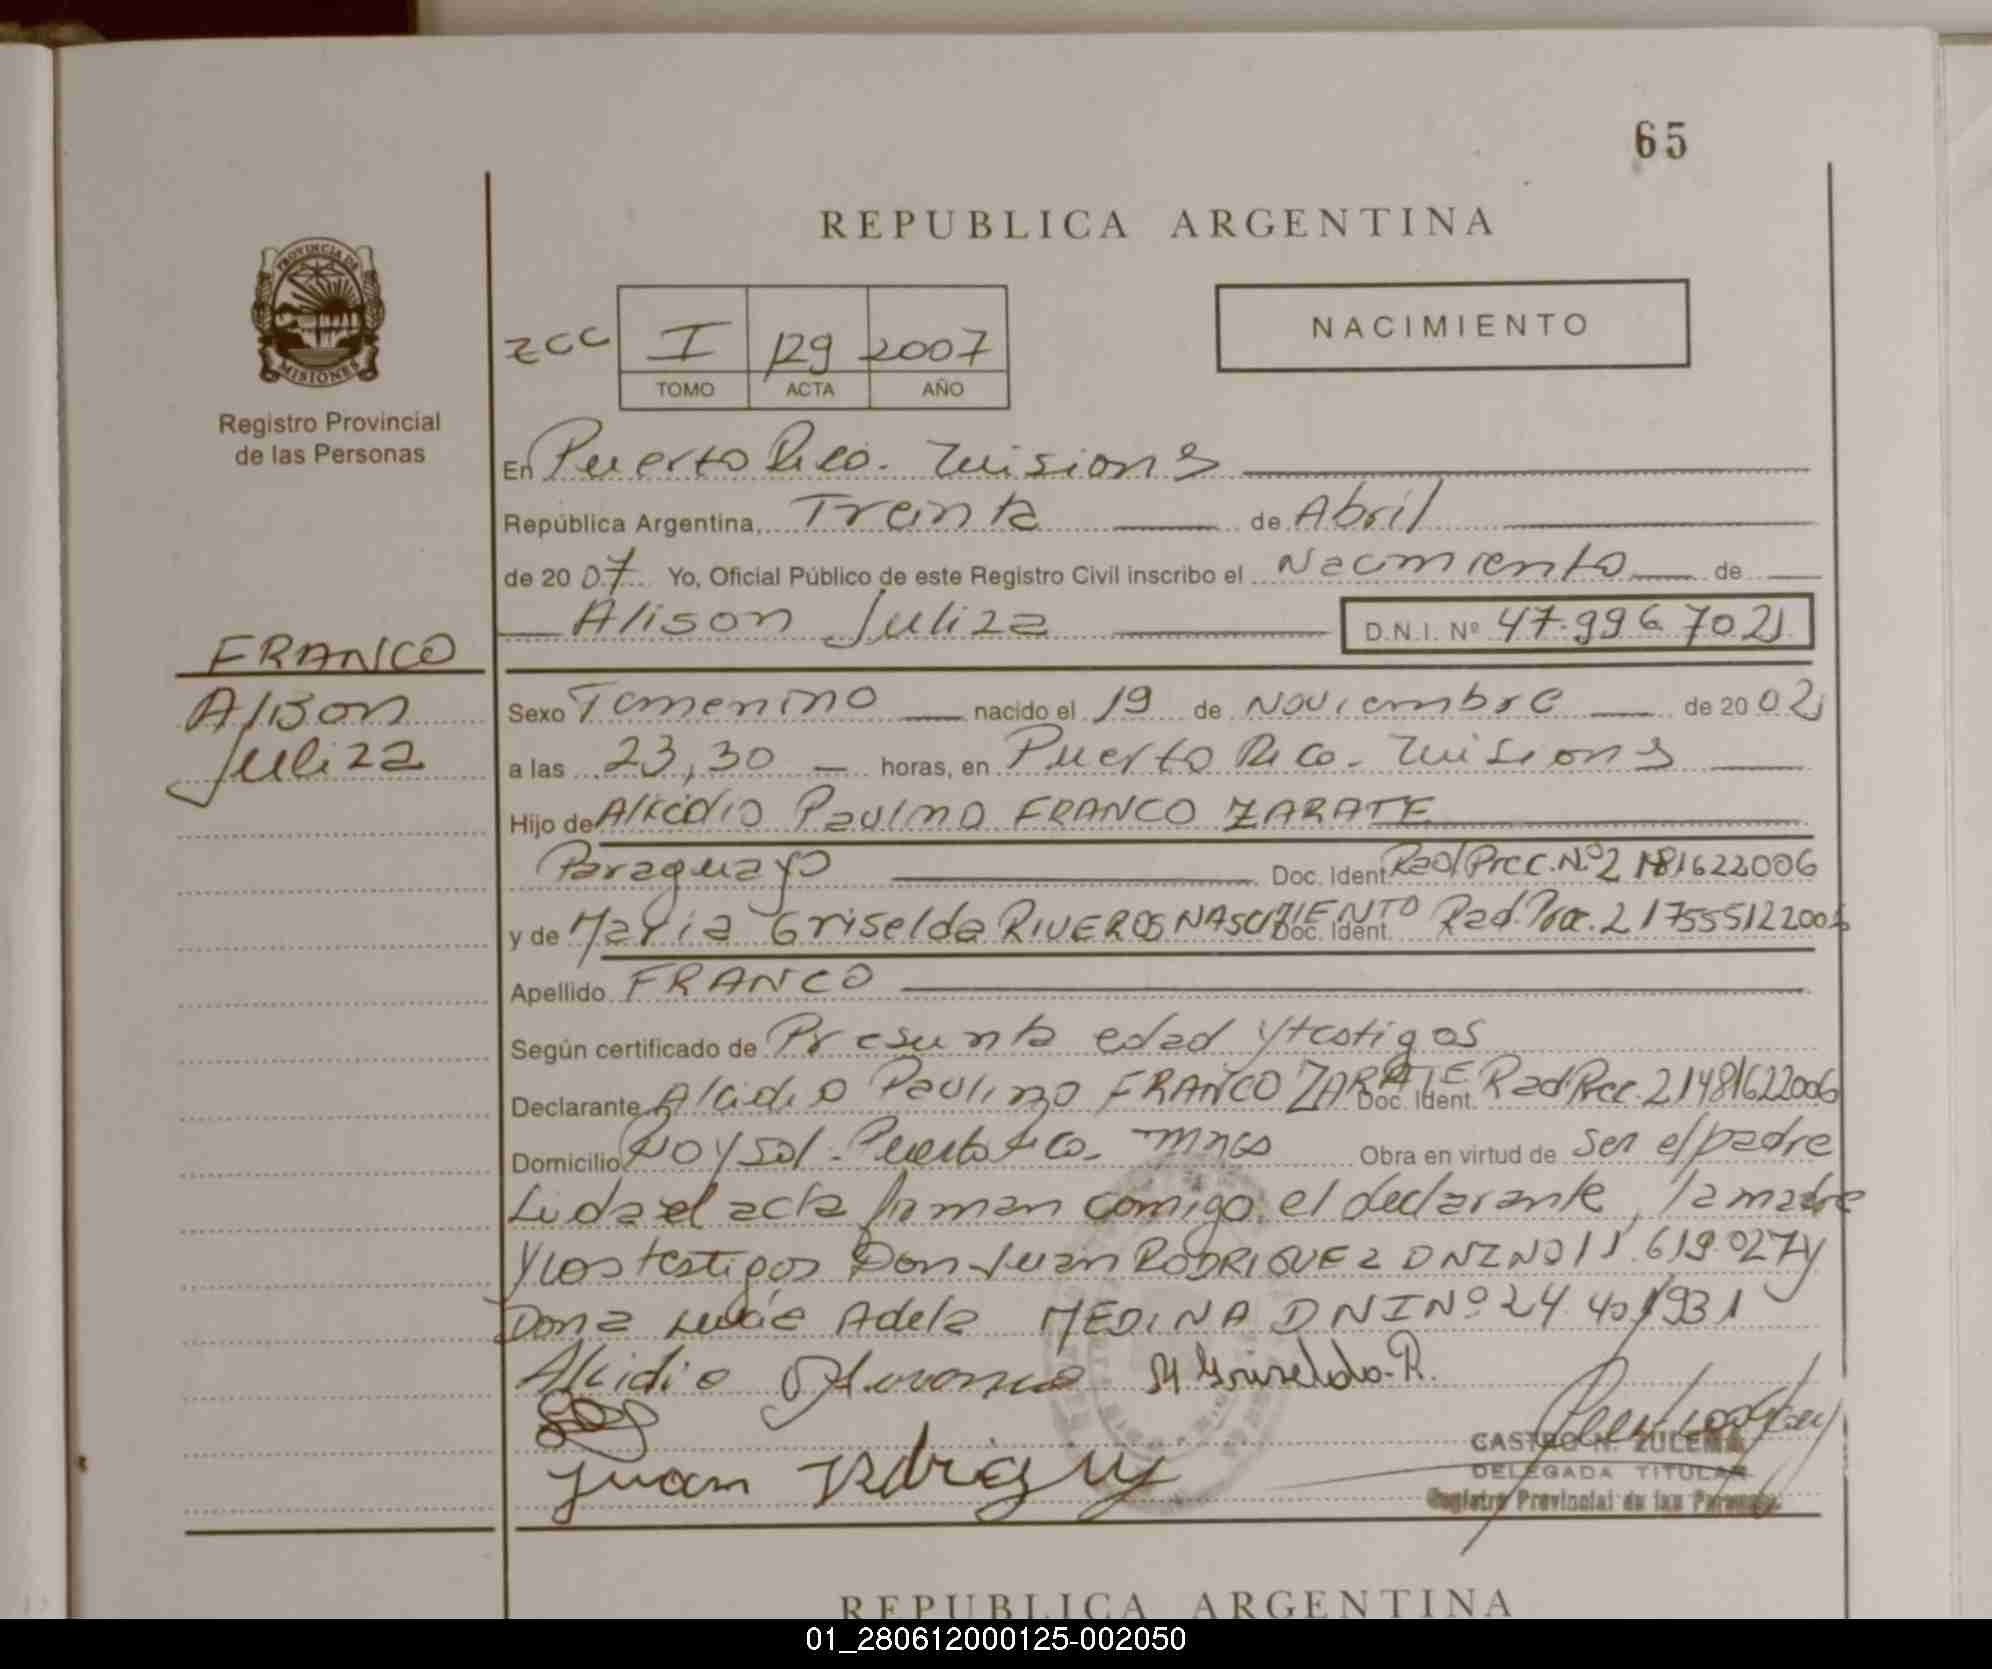 65
REPUBLICA ARGENTINA
PROVINCIA DE
MISIONES
Registro Provincial
de las Personas
zcc I 129 2007
TOMO ACTA AÑO
NACIMIENTO
En Puerto Rico. Misiones
República Argentina, Treinta de Abril
de 20 07 Yo, Oficial Público de este Registro Civil inscribo el Nacimiento de
Alison Juliza D.N.I. Nº 47.996.702
FRANCO
Alison
Juliza
Sexo Femenino nacido el 19 de Noviembre de 20 02
a las 23,30 horas, en Puerto Rico. Misiones
Hijo de Alcidio Paulino FRANCO ZARATE
Paraguayo Doc. Ident. Rad/Prec. Nº
y de Maria Griselda RIVEROS NASCIMIENTO Doc. Ident. Rad. Prec.
Apellido FRANCO
Según certificado de Presunta edad y testigos
Declarante Alcidio Paulino FRANCO ZARATE Doc. Ident. Rad/Prec. 21481622006
Domicilio Puerto Rico. Mnes Obra en virtud de ser el padre
Leida el acta firman comigo, el declarante, la madre
y los testigos Don Juan RODRIGUEZ DNI Nº 11.619.027 y
Dona Adela MEDINA DNI Nº 24.401931
Alcidio M Griselda.R.
Juan
CASTRO N. ZULEMA
DELEGADA TITULAR
Registro Provincial de las Personas
REPUBLICA ARGENTINA
01_280612000125-002050